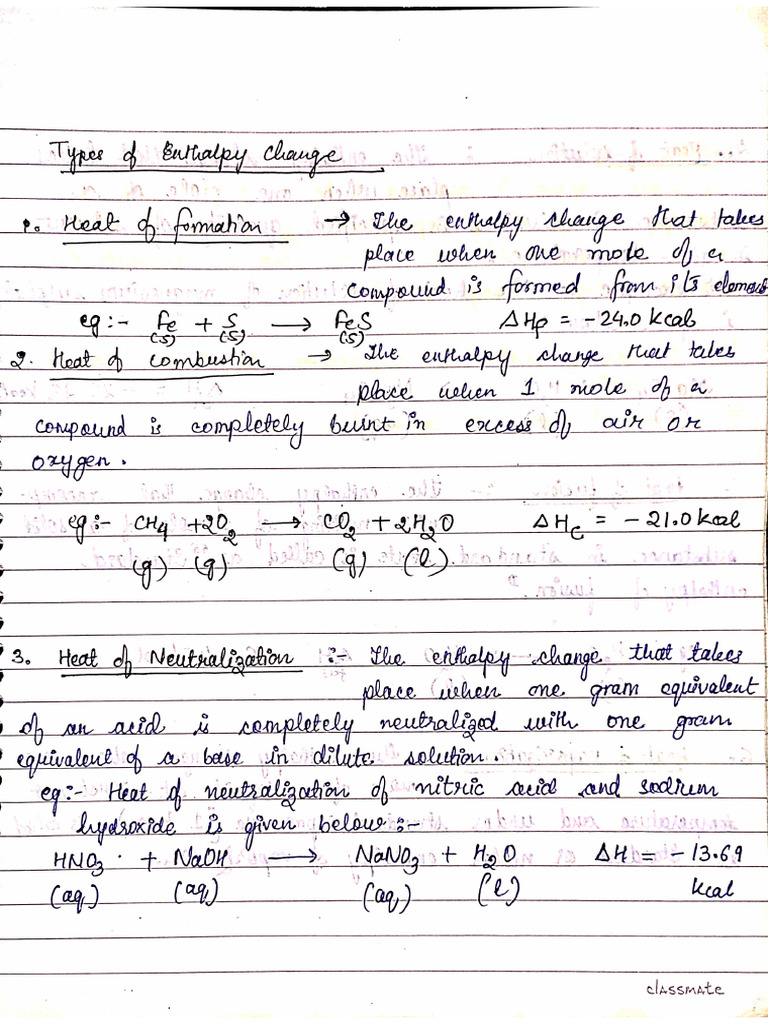 Types of Enthalpy Change
1. Heat of formation → The enthalpy change that takes
place when one mole of a
compound is formed from its element
eg:- Fe + S ⟶ FeS ΔHf = -24.0 kcal
(s) (s) (s)
2. Heat of combustion → The enthalpy change that takes
place when 1 mole of a
compound is completely burnt in excess of air or
oxygen.
eg:- CH4 + 2O2 ⟶ CO2 + 2H2O ΔHc = -21.0 kcal
(g) (g) (g) (l).
3. Heat of Neutralization :- The enthalpy change that takes
place when one gram equivalent
of an acid is completely neutralized with one gram
equivalent of a base in dilute solution.
eg:- Heat of neutralization of nitric acid and sodium
hydroxide is given below:-
HNO3 + NaOH ⟶ NaNO3 + H2O ΔH = -13.69
(aq) (aq) (aq) (l) kcal
classmate